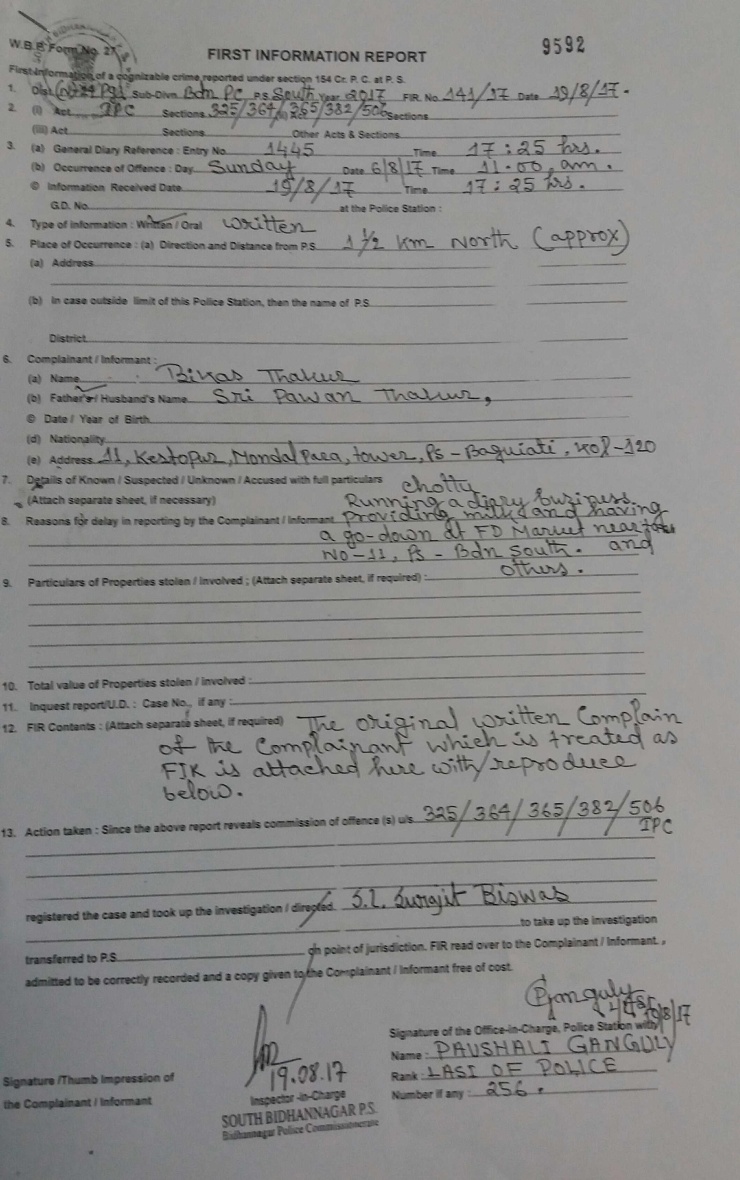 W.B.P. Form No. 27
FIRST INFORMATION REPORT
9592
First Information of a cognizable crime reported under section 154 Cr. P. C. at P. S.
1. Dist. Sub-Divn. Bdn PC P.S. South Year 2017 FIR. No. 141/17 Date 19/8/17.
2. (i) Act IPC Sections 325/364/365/382/506 Sections
(iii) Act Sections Other Acts & Sections
3. (a) General Diary Reference : Entry No 1445 Time 17:25 hrs.
(b) Occurrence of Offence : Day Sunday Date 6/8/17 Time 11.00, am.
© Information Received Date 19/8/17 Time 17:25 hrs.
G.D. No. at the Police Station :
4. Type of information : Written / Oral written
5. Place of Occurrence : (a) Direction and Distance from P.S. 1 ½ km North (approx)
(a) Address
(b) In case outside limit of this Police Station, then the name of P.S.
District
6. Complainant / Informant :
(a) Name : Bikas Thakur
(b) Father's / Husband's Name Sri Pawan Thakur,
© Date / Year of Birth
(d) Nationality
(e) Address 11, Kestopur, Mondal Para, tower, Ps - Baguiati, Kol-120
7. Details of Known / Suspected / Unknown / Accused with full particulars chotty
(Attach separate sheet, if necessary) Running a diary buziness.
8. Reasons for delay in reporting by the Complainant / Informant providing milk and having
a go-down at FD Market near
No-11, Ps - Bdn South. and
others.
9. Particulars of Properties stolen / involved ; (Attach separate sheet, if required) :
10. Total value of Properties stolen / involved :
11. Inquest report/U.D. : Case No., if any :
12. FIR Contents : (Attach separate sheet, if required) The original written Complain
of the Complainant which is treated as
FIR is attached here with/reproduce
below.
13. Action taken : Since the above report reveals commission of offence (s) u/s 325/364/365/382/506
IPC
registered the case and took up the investigation / directed S.I. Surajit Biswas
to take up the investigation
transferred to P.S. on point of jurisdiction. FIR read over to the Complainant / Informant. ,
admitted to be correctly recorded and a copy given to the Complainant / Informant free of cost.
PGanguly
19/8/17
Signature of the Office-in-Charge, Police Station with
Name : PAUSHALI GANGULY
Rank : LASI OF POLICE
Number if any : 256.
19.08.17
Inspector-in-Charge
SOUTH BIDHANNAGAR P.S.
Bidhannagar Police Commissionerate
Signature /Thumb Impression of
the Complainant / Informant